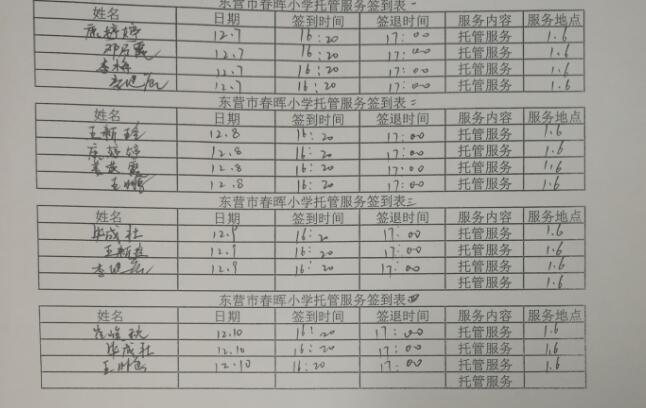 东营市春晖小学托管服务签到表一
姓名 日期 签到时间 签退时间 服务内容 服务地点
12.7 16:20 17:00 托管服务 1.6
12.7 16:20 17:00 托管服务 1.6
李梅 12.7 16:20 17:00 托管服务 1.6
12.7 16:20 17:00 托管服务 1.6
东营市春晖小学托管服务签到表二
姓名 日期 签到时间 签退时间 服务内容 服务地点
王新玲 12.8 16:20 17:00 托管服务 1.6
12.8 16:20 17:00 托管服务 1.6
12.8 16:20 17:00 托管服务 1.6
12.8 16:20 17:00 托管服务 1.6
东营市春晖小学托管服务签到表三
姓名 日期 签到时间 签退时间 服务内容 服务地点
毕成社 12.9 16:20 17:00 托管服务 1.6
12.9 16:20 17:00 托管服务 1.6
12.9 16:20 17:00 托管服务 1.6
托管服务 1.6
东营市春晖小学托管服务签到表四
姓名 日期 签到时间 签退时间 服务内容 服务地点
12.10 16:20 17:00 托管服务 1.6
毕成社 12.10 16:20 17:00 托管服务 1.6
12.10 16:20 17:00 托管服务 1.6
托管服务